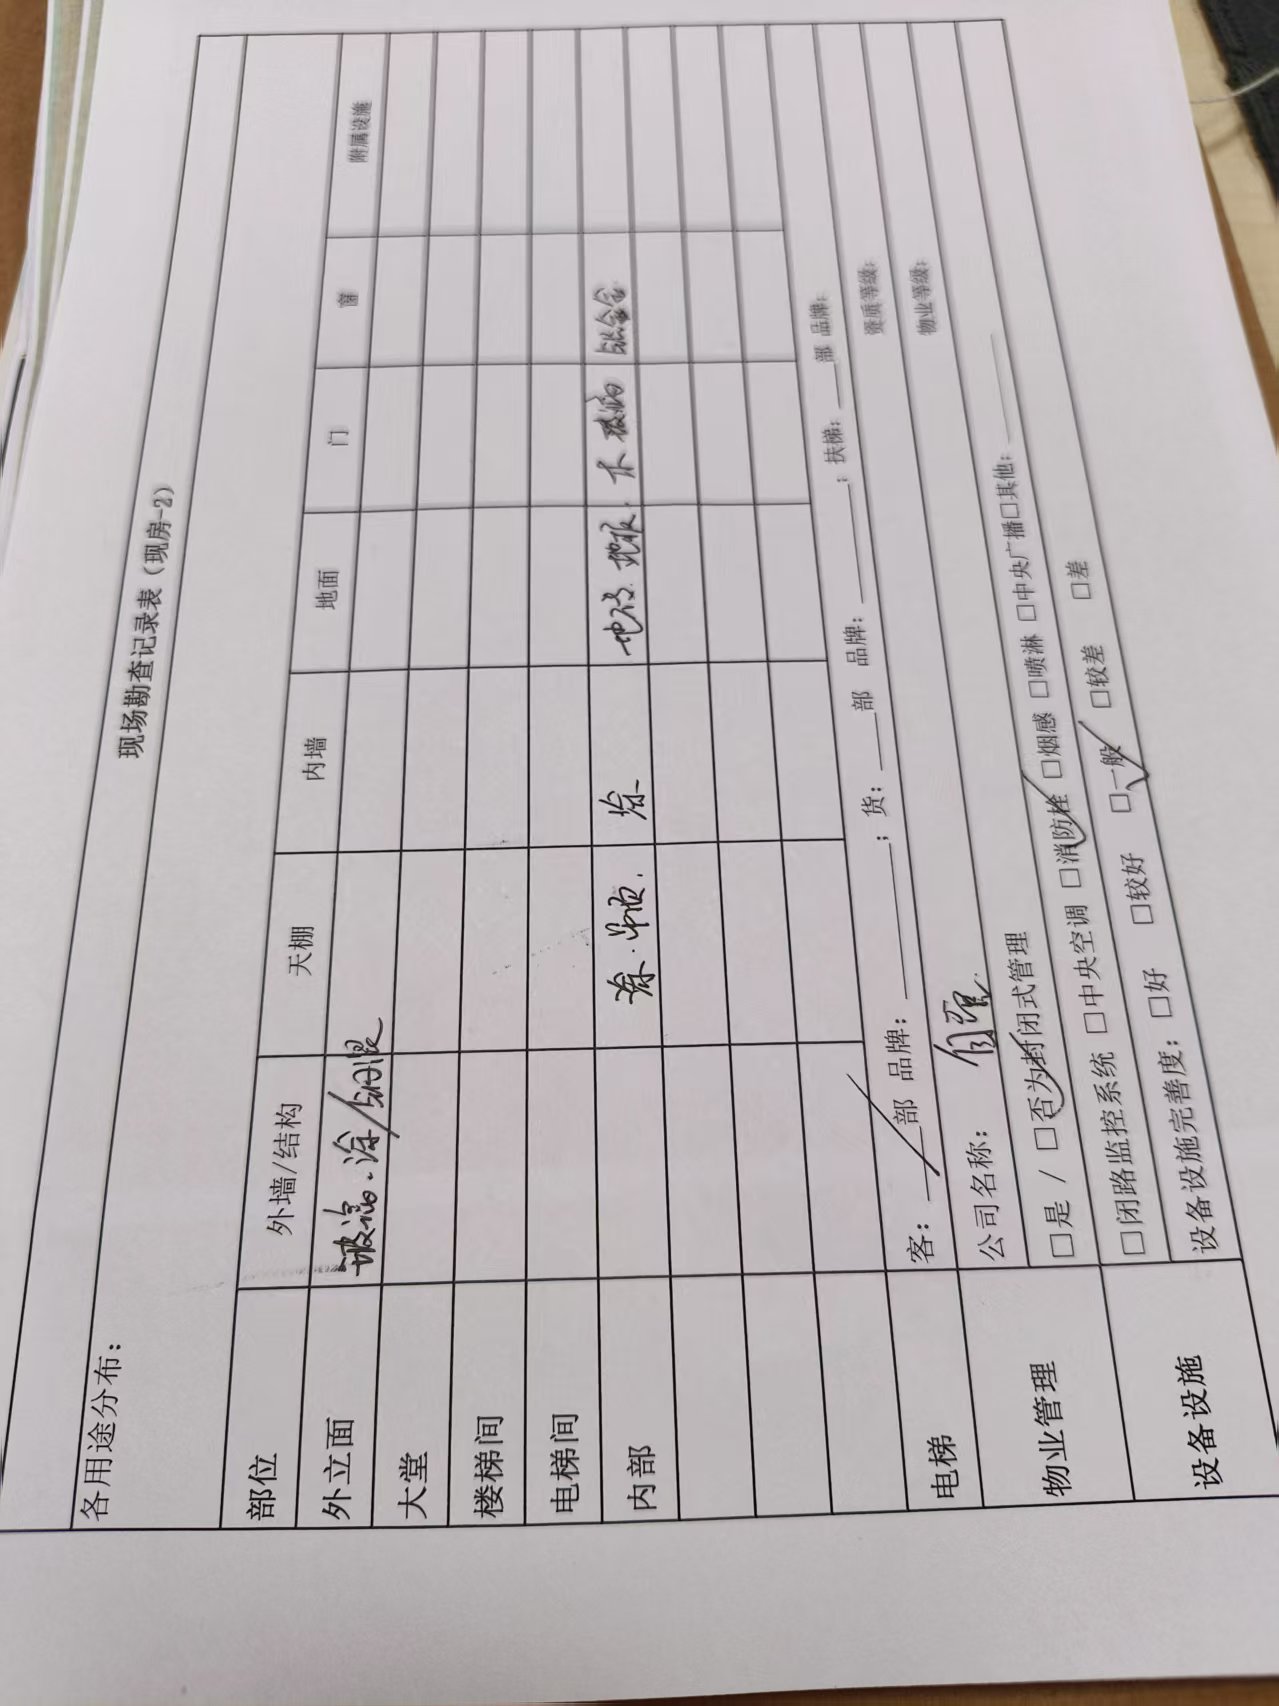 现场勘查记录表（现房-2）
各用途分布：
部位 外墙/结构 天棚 内墙 地面 门 窗 附属设施
外立面 玻璃、涂/钢混
大堂
楼梯间
电梯间
内部 涂、吊顶、 涂 地砖、地板、 木 玻璃 铝合金
电梯 客：____部 品牌：________；货：____部 品牌：________；扶梯：____部 品牌：
物业管理 公司名称： 自管 资质等级：
□是 / □否为封闭式管理 物业等级：
设备设施 □闭路监控系统 □中央空调 □消防栓 □烟感 □喷淋 □中央广播□其他：________
设备设施完善度： □好 □较好 □一般 □较差 □差